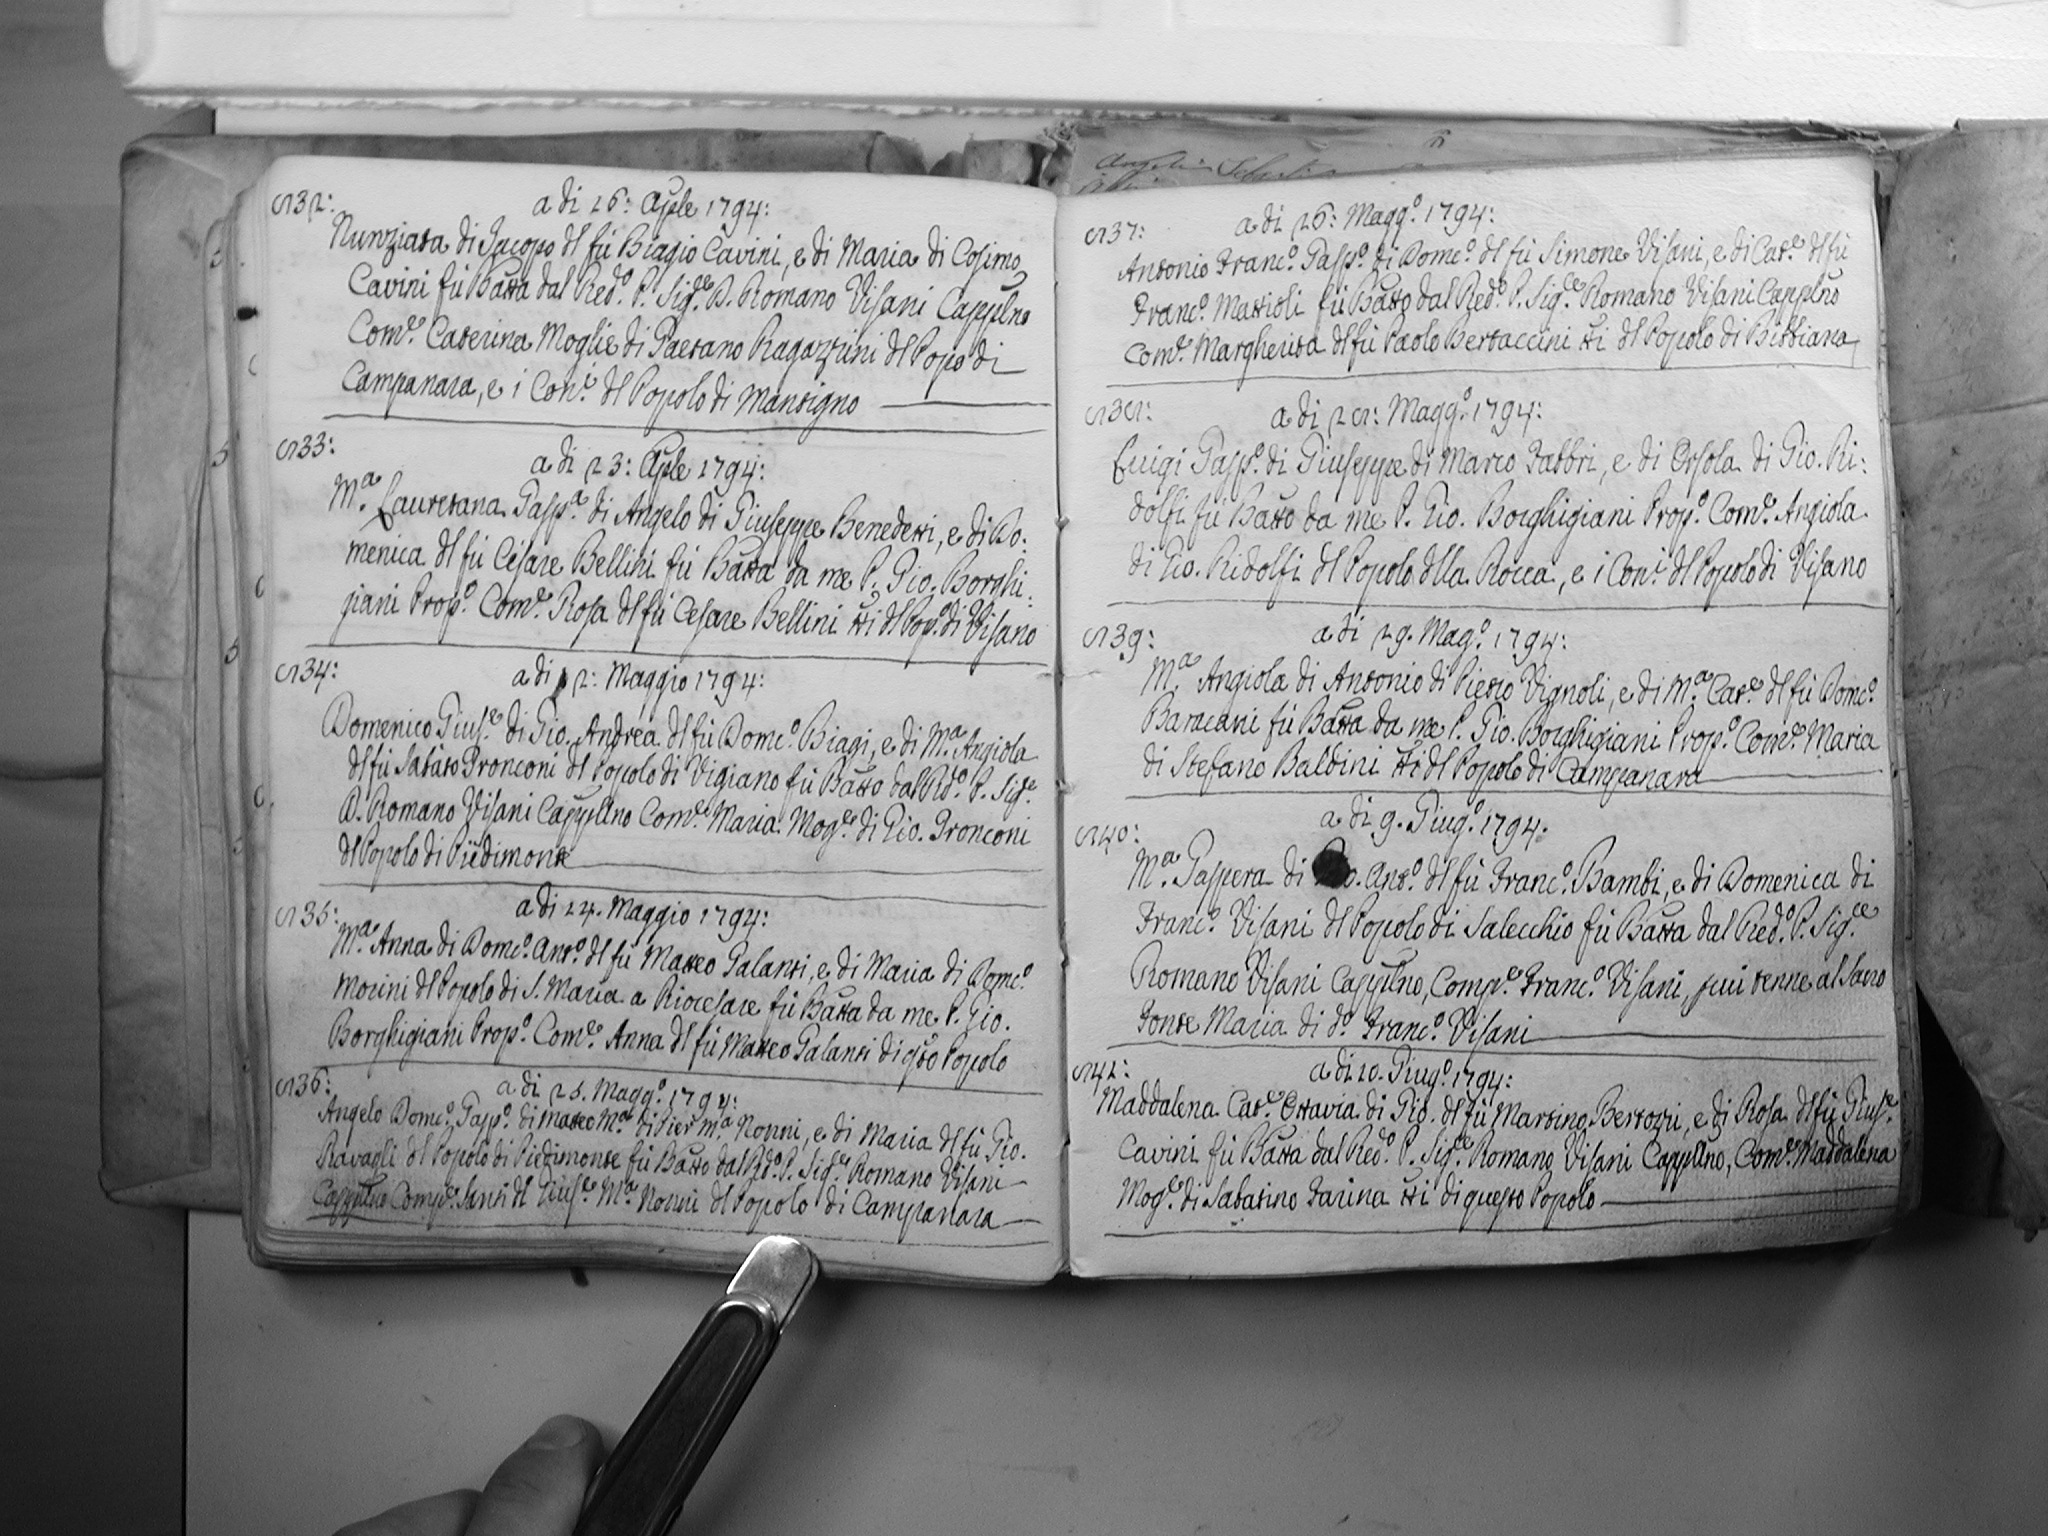 832:
a di 16: Aple 1794:
Nunziata di Jacopo dl fù Biagio Cavini, e di Maria di Cosimo
Cavini fù Batta dal Red.º P. Sig.re D. Romano Visani Cappllno
Com.e Caterina Moglie di Gaetano Ragazzini dl Popo di
Campanara, e i Con.i dl Popolo di Mantigno
833:
a di 23: Aple 1794:
M.a Lauretana Gasp.a di Angelo di Giuseppe Benedetti, e di Do:
menica dl fù Cesare Bellini fù Batta da me P. Gio. Borghi:
giani Prop.º Com.e Rosa dl fù Cesare Bellini tti dl Pop.º di Visano
834:
a di 12: Maggio 1794:
Domenico Gius.e di Gio. Andrea dl fù Dom.co Biagi, e di M.a Angiola
dl fù Sabato Fronconi dl Popolo di Vigiano fù Batto dal Rd.º P. Sig.e
D. Romano Visani Cappllno Com.e Maria Mog.e di Gio. Fronconi
dl Popolo di Piedimonte
835:
a di 24. Maggio 1794:
M.a Anna di Dom.co Ant.º dl fù Matteo Galanti, e di Maria di Dom.co
Morini dl Popolo di S. Maria a Riocesare fù Batta da me P. Gio.
Borghigiani Prop.º Com.e Anna dl fù Matteo Galanti di qsto Popolo
836:
a di 25. Magg.º 1794:
Angelo Dom.co Gasp.º di Matteo M.a di Pier M.a Nonni, e di Maria dl fù Gio.
Ravagli dl Popolo di Piedimonte fù Batto dal Rd.º P. Sig.re Romano Visani
Cappllno Comp.e Santi dl Gius.e M.a Nonni dl Popolo di Campanara
837:
a di 26: Magg.º 1794:
Antonio Franc.º Gasp.º di Dom.co dl fù Simone Visani, e di Cat.e dl fù
Franc.º Mattioli fù Batto dal Red.º P. Sig.re Romano Visani Cappllno
Com.e Margherita dl fù Paolo Bertaccini tti dl Popolo di Bibbiana
838:
a di 28: Magg.º 1794:
Luigi Gasp.º di Giuseppe di Marco Fabbri, e di Orsola di Gio. Ri:
dolfi fù Batto da me P. Gio. Borghigiani Prop.º Com.e Angiola
di Gio. Ridolfi dl Popolo dlla Rocca, e i Con.i dl Popolo di Visano
839:
a di 29. Mag.º 1794:
M.a Angiola di Antonio di Pietro Vignoli, e di M.a Cat.e dl fù Dom.co
Baracani fù Batta da me P. Gio. Borghigiani Prop.º Com.e Maria
di Stefano Baldini tti dl Popolo di Campanara
840:
a di 9. Giug.º 1794.
M.a Gaspera di Ant.º dl fù Franc.º Bambi, e di Domenica di
Franc.º Visani dl Popolo di Salecchio fù Batta dal Red.º P. Sig.re
Romano Visani Cappllno, Comp.e Franc.º Visani, tenne al Sacro
Fonte Maria di d.º Franc.º Visani
841:
a di 10. Giug.º 1794:
Maddalena Cat.e Ottavia di Gio. dl fù Martino Bertozzi, e di Rosa dl fù Gius.e
Cavini fù Batta dal Red.º P. Sig.re Romano Visani Cappllno, Com.e Maddalena
Mog.e di Sabatino Farina tti di questo Popolo